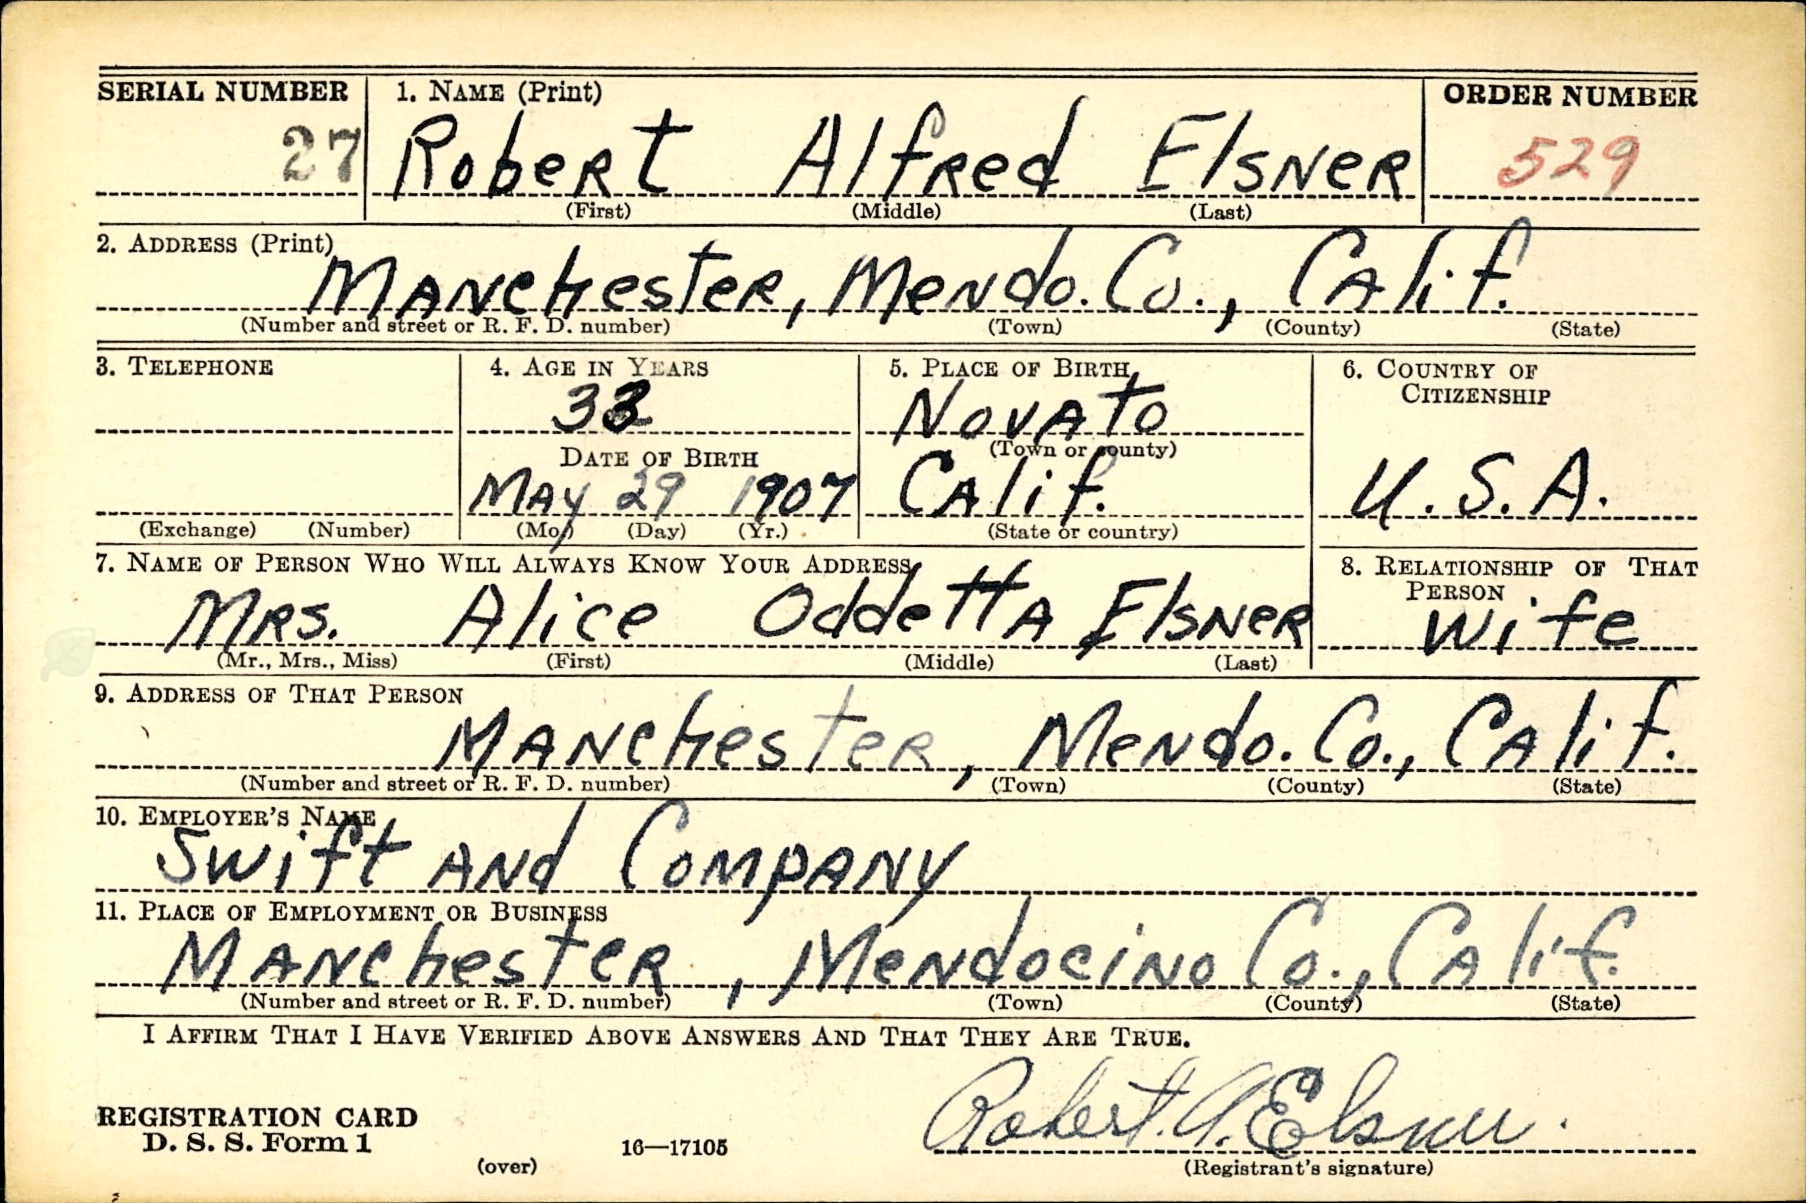 SERIAL NUMBER
27
1. NAME (Print)
Robert Alfred Elsner
(First) (Middle) (Last)
ORDER NUMBER
529
2. ADDRESS (Print)
Manchester, Mendo. Co., Calif.
(Number and street or R. F. D. number) (Town) (County) (State)
3. TELEPHONE
(Exchange) (Number)
4. AGE IN YEARS
33
DATE OF BIRTH
May 29 1907
(Mo.) (Day) (Yr.)
5. PLACE OF BIRTH
Novato
(Town or county)
Calif.
(State or country)
6. COUNTRY OF
CITIZENSHIP
U.S.A.
7. NAME OF PERSON WHO WILL ALWAYS KNOW YOUR ADDRESS
Mrs. Alice Oddetta Elsner
(Mr., Mrs., Miss) (First) (Middle) (Last)
8. RELATIONSHIP OF THAT
PERSON
Wife
9. ADDRESS OF THAT PERSON
Manchester, Mendo. Co., Calif.
(Number and street or R. F. D. number) (Town) (County) (State)
10. EMPLOYER'S NAME
Swift and Company
11. PLACE OF EMPLOYMENT OR BUSINESS
Manchester, Mendocino Co., Calif.
(Number and street or R. F. D. number) (Town) (County) (State)
I AFFIRM THAT I HAVE VERIFIED ABOVE ANSWERS AND THAT THEY ARE TRUE.
Robert. A. Elsner.
REGISTRATION CARD
D. S. S. Form 1
(over)
16—17105
(Registrant's signature)